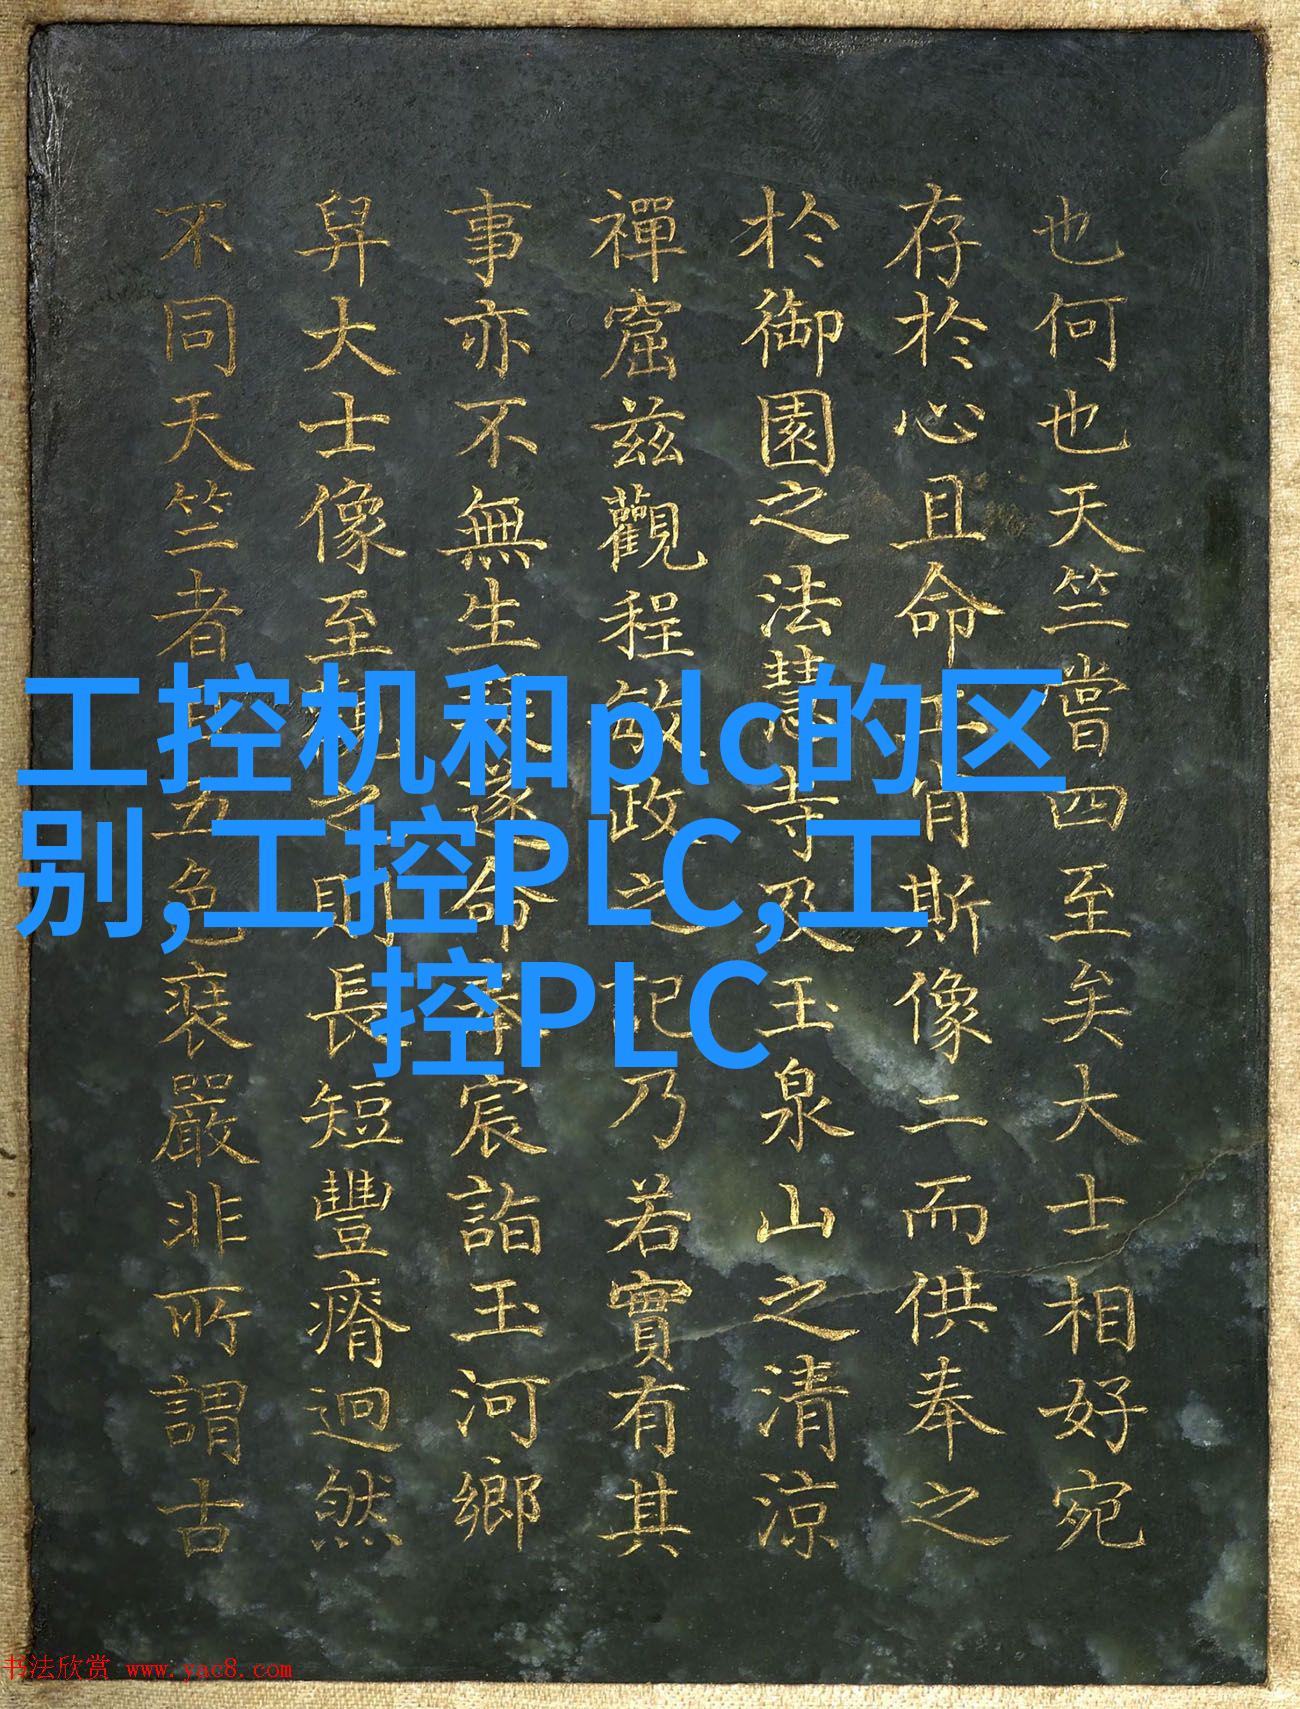 也何也天竺嘗四至矣大士相好宛
存於心且命工肖斯像二而供奉之
於御園之法慧寺及玉泉山之清涼
禪窟兹觀程敏政之記乃若實有其
事亦不無生疑遂命奉宸詣玉河鄉
舁大士像至之則長短豐瘠迥然
不同天竺者五色裝嚴非所謂古
工控机和plc的区
别,工控PLC,工
控PLC
书法欣赏 www.yac8.com